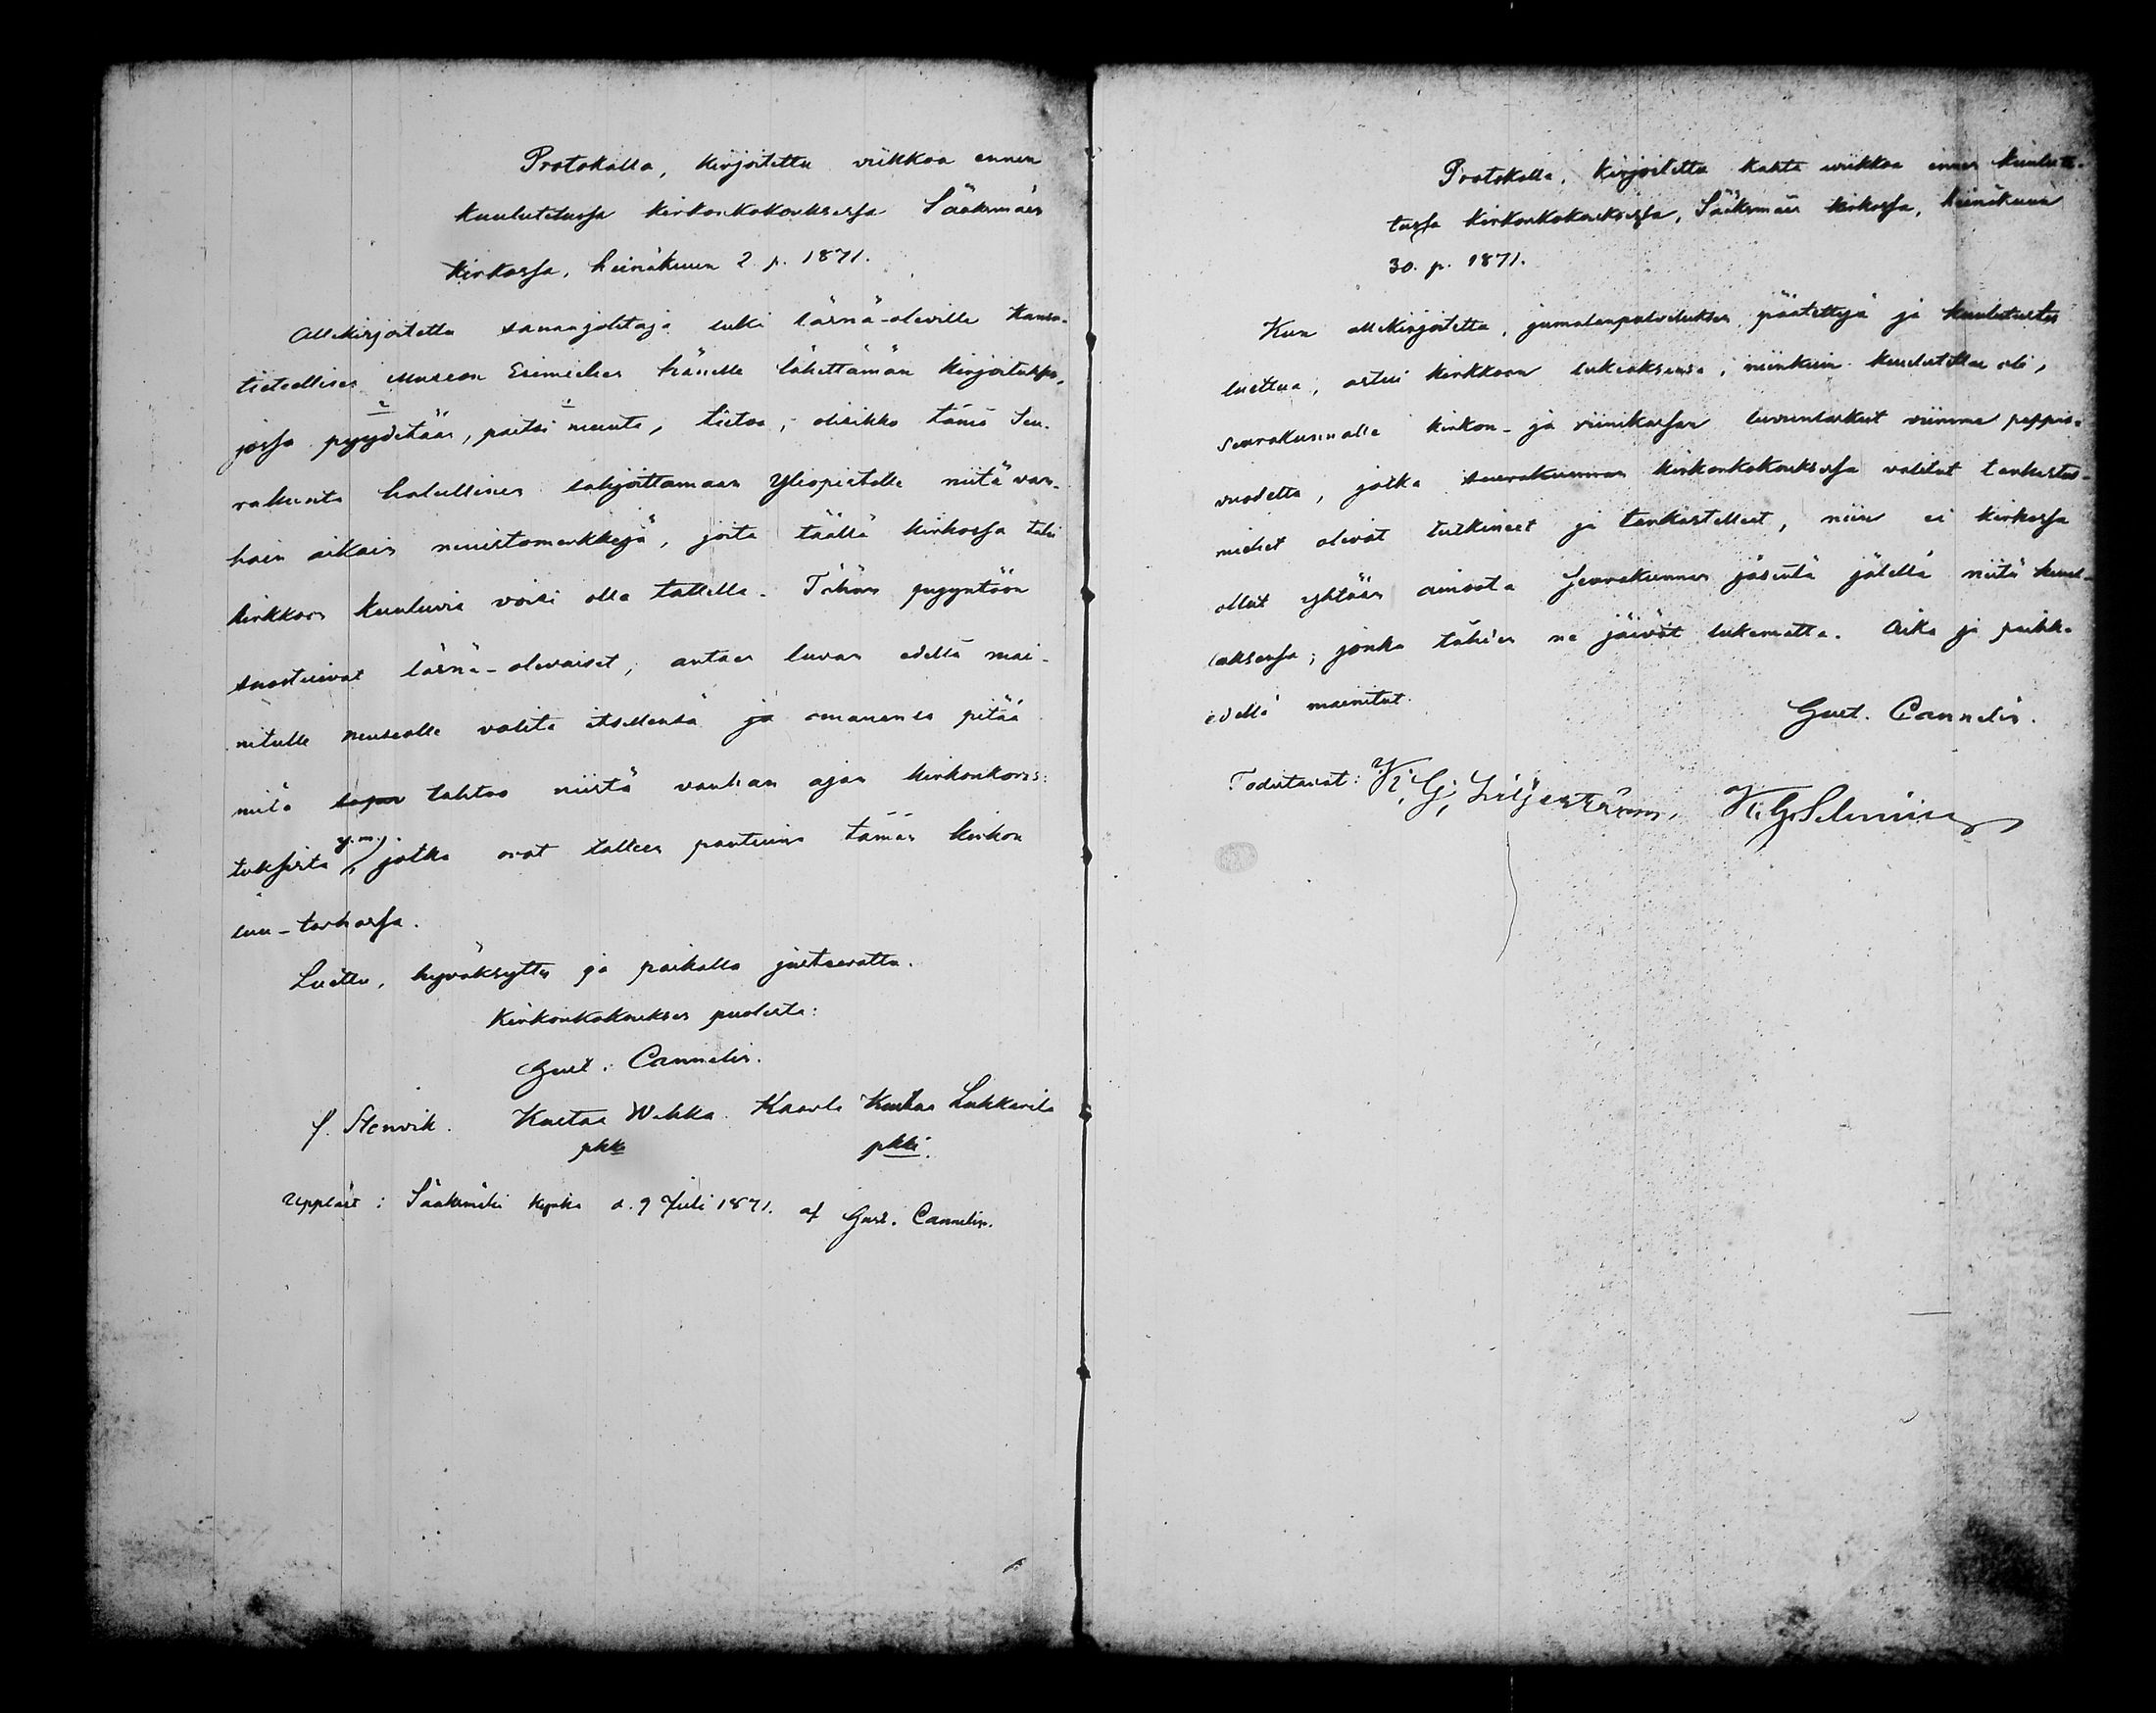 Protokolla, kirjoitettu viikkoa ennen
kuulutetussa kirkonkokouksessa Sääksmäen
kirkossa, heinäkuun 2 p. 1871.
Allekirjoitettu sananjohtaja luki läsnä-oleville Kansa-
tieteellisen Museon Esimiehen hänelle lähettämän kirjoituksen,
jossa pyydetään, paitsi muuta, tietoa, olisikko tämä Seu-
rakunta halullinen lahjoittamaan Yliopistolle niitä van-
hain aikain muistomerkkejä, joita täällä kirkossa tahi
kirkkoon kuuluvia voisi olla tallella. Tähän pyyntöön
suostuivat läsnä-olevaiset, antaen luvan edellä mai-
nitulle museolle valita itsellensä ja omanansa pitää
mitä tahtoo niistä vanhan ajan kirkonkoris-
tuksista y.m., jotka ovat talteen pantuina tämän kirkon
luu-tarhassa.
Luettu, hyväksytty ja paikalla justeerattu.
Kirkonkokouksen puolesta:
Gust. Cannelin.
J. Stenvik. Kustaa Wahka Kaarle Kustaa Lukkarila
pkki pkki.
Uppläst i Sääksmäki kyrka d. 9 Juli 1871. af Gust. Cannelin.
Protokolla, kirjoitettu kahta wiikkoa ennen kuulute-
tussa kirkonkokouksessa, Sääksmäen kirkossa, heinäkuun
30. p. 1871.
Kun allekirjoitettu, jumalanpalveluksen päätettyä ja kuulutusten
luettua, astui kirkkoon lukeaksensa, niinkuin kuulutettu oli,
seurakunnalle kirkon- ja viinikassan luvunlaskut viimme pappis-
vuodelta, jotka seurakunnan kirkonkokouksessa valitut tarkastus-
miehet olivat tutkineet ja tarkastelleet, niin ei kirkossa
ollut yhtään ainoata Seurakunnan jäsentä jälellä niitä kuul-
laksensa; jonka tähden ne jäivät lukematta. Aika ja paikka
edellä mainitut.
Gust. Cannelin.
Todistavat: K. G. Liljeström, K. G. Selenius